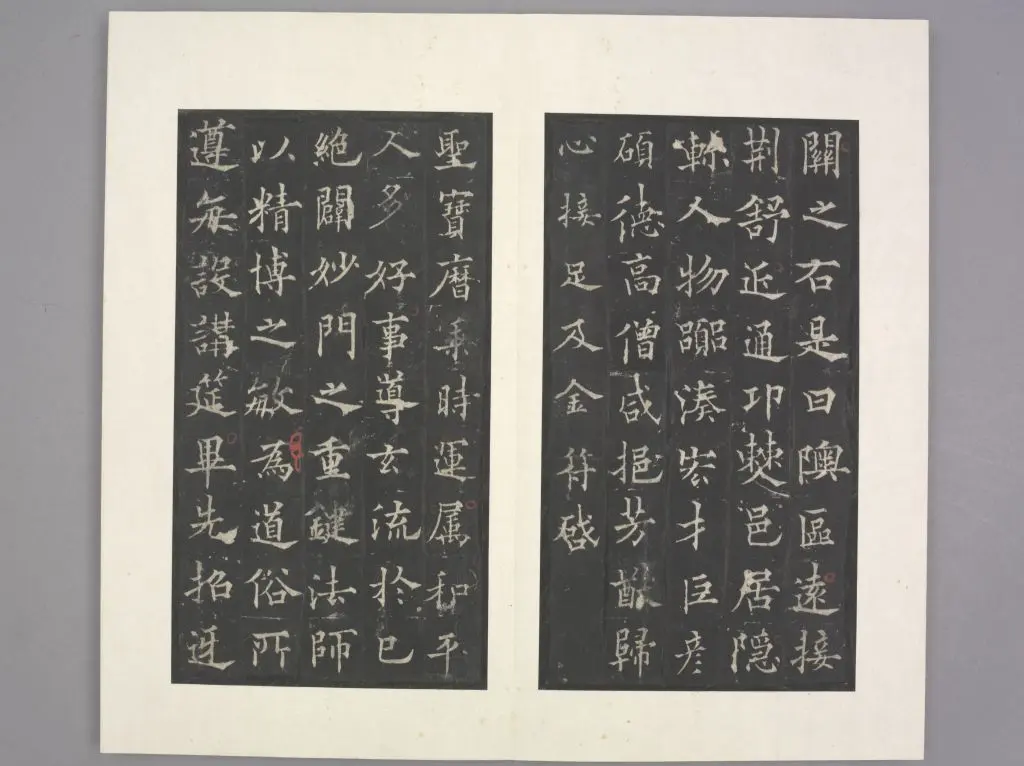 關之右是曰隩區遠接
荊舒近通邛僰邑居隱
軫人物湊宏才巨彥
碩德高僧咸挹芳猷歸
心接足及金符啓
聖寶曆乗時運属和平
人多好事導玄流於已
絶闢妙門之重鍵法師
以精博之敏為道俗所
遵每設講筵畢先招迓